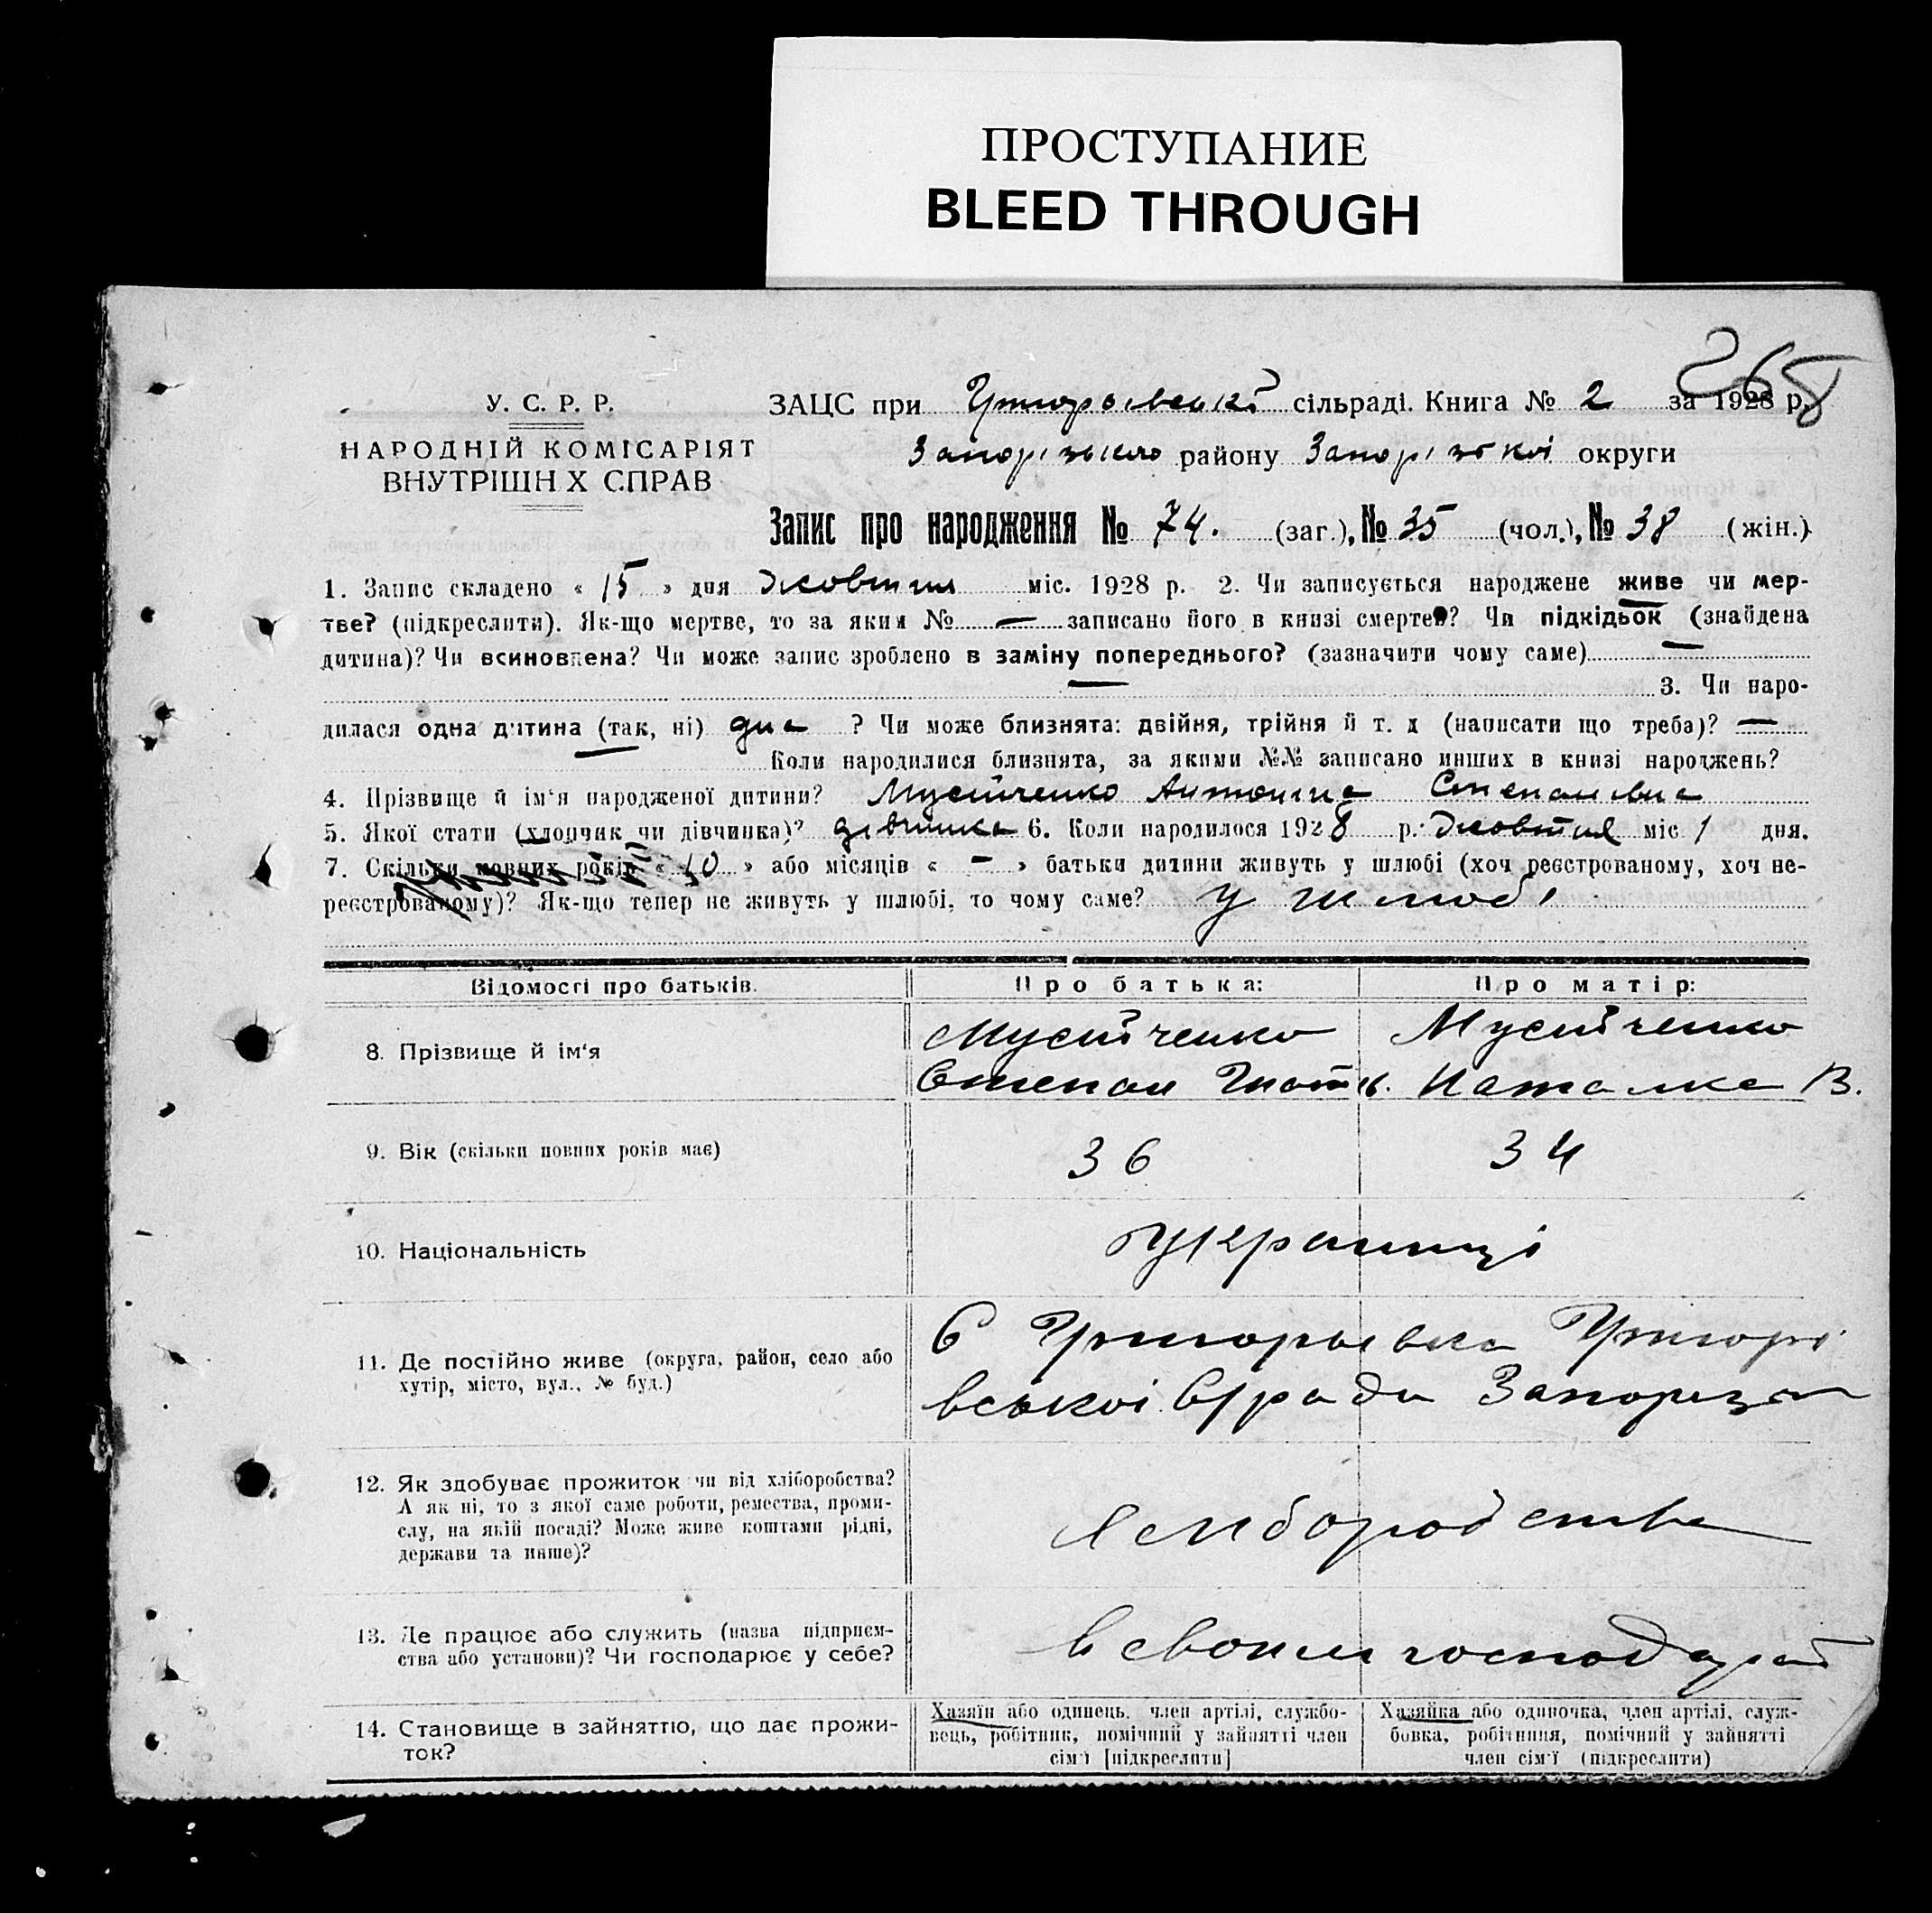 ПРОСТУПАНИЕ
BLEED THROUGH
268
У. С. Р. Р.
НАРОДНІЙ КОМІСАРІЯТ
ВНУТРІШН Х СПРАВ
ЗАЦС при сільраді. Книга № 2 за 1928 р.
Запорізького району Запорізької округи
Запис про народження № 74. (заг.), № 35 (чол.), № 38 (жін.)
1. Запис складено « 15 » дня жовтня міс. 1928 р. 2. Чи записується народжене живе чи мер-
тве? (підкреслити). Як-що мертве, то за яким № — записано його в книзі смертей? Чи підкідьок (знайдена
дитина)? Чи всиновлена? Чи може запис зроблено в заміну попереднього? (зазначити чому саме)
3. Чи наро-
дилася одна дитина (так, ні) ? Чи може близнята: двійня, трійня й т. д (написати що треба)? —
Коли народилися близнята, за якими №№ записано инших в книзі народжень?
4. Прізвище й ім'я народженої дитини? Мусійченко Антонина Степановна
5. Якої стати (хлопчик чи дівчинка)? дівчинка 6. Коли народилося 1928 р. жовтня міс 1 дня.
7. Скільки повних років « 10 » або місяців « - » батьки дитини живуть у шлюбі (хоч реєстрованому, хоч не-
реєстрованому)? Як-що тепер не живуть у шлюбі, то чому саме? у шлюбі
Відомості про батьків.
Про батька:
Про матір:
8. Прізвище й ім'я
Мусійченко
Степан Гнатів.
Мусійченко
Наталка В.
9. Вік (скільки повних років має)
36
34
10. Національність
українці
11. Де постійно живе (округа, район, село або
хутір, місто, вул., № буд.)
С Григорьівка Григорі
вської С/ради Запоріз
12. Як здобуває прожиток чи від хліборобства?
А як ні, то з якої саме роботи, ремества, проми-
слу, на якій посаді? Може живе коштами рідні,
держави та инше)?
хліборобство
13. Де працює або служить (назва підприєм-
ства або установи)? Чи господарює у себе?
в своїм господар
14. Становище в зайняттю, що дає прожи-
ток?
Хазяїн або одинець, член артілі, службо-
вець, робітник, помічний у зайнятті член
сім'ї [підкреслити]
Хазяйка або одиночка, член артілі, служ-
бовка, робітниця, помічний у зайнятті
член сім'ї (підкреслити)